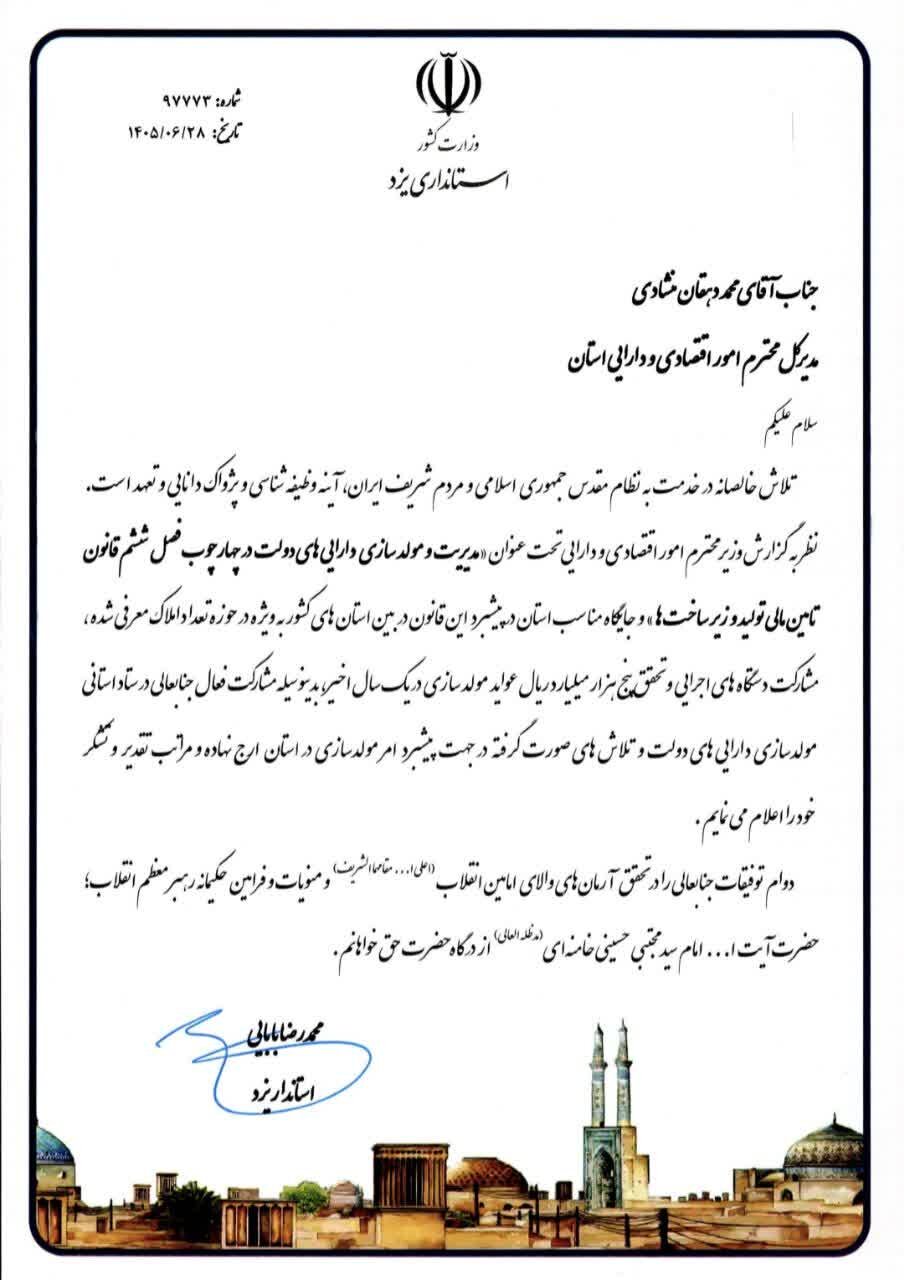 شماره: ۹۷۷۷۳
تاریخ: ۱۴۰۵/۰۶/۲۸
وزارت کشور
استانداری یزد
جناب آقای محمد دهقان منشادی
مدیرکل محترم امور اقتصادی و دارایی استان
سلام علیکم
تلاش خالصانه در خدمت به نظام مقدس جمهوری اسلامی و مردم شریف ایران، آینه وظیفه شناسی و پژواک دانایی و تعهد است.
نظر به گزارش وزیر محترم امور اقتصادی و دارایی تحت عنوان «مدیریت و مولدسازی دارایی های دولت در چهارچوب فصل ششم قانون
تامین مالی تولید و زیرساخت ها» و جایگاه مناسب استان در پیشبرد این قانون در بین استان های کشور به ویژه در حوزه تعداد املاک معرفی شده ،
مشارکت دستگاه های اجرایی و تحقق پنج هزار میلیارد ریال عواید مولدسازی در یک سال اخیر، بدینوسیله مشارکت فعال جنابعالی در ستاد استانی
مولدسازی دارایی های دولت و تلاش های صورت گرفته در جهت پیشبرد امر مولدسازی در استان ارج نهاده و مراتب تقدیر و تشکر
خود را اعلام می نمایم .
دوام توفیقات جنابعالی را در تحقق آرمان های والای امامین انقلاب (اعلی ا... مقامهما الشریف) و منویات و فرامین حکیمانه رهبر معظم انقلاب؛
حضرت آیت ا... امام سید مجتبی حسینی خامنه ای (مدظله العالی) از درگاه حضرت حق خواهانم .
محمدرضا بابایی
استاندار یزد